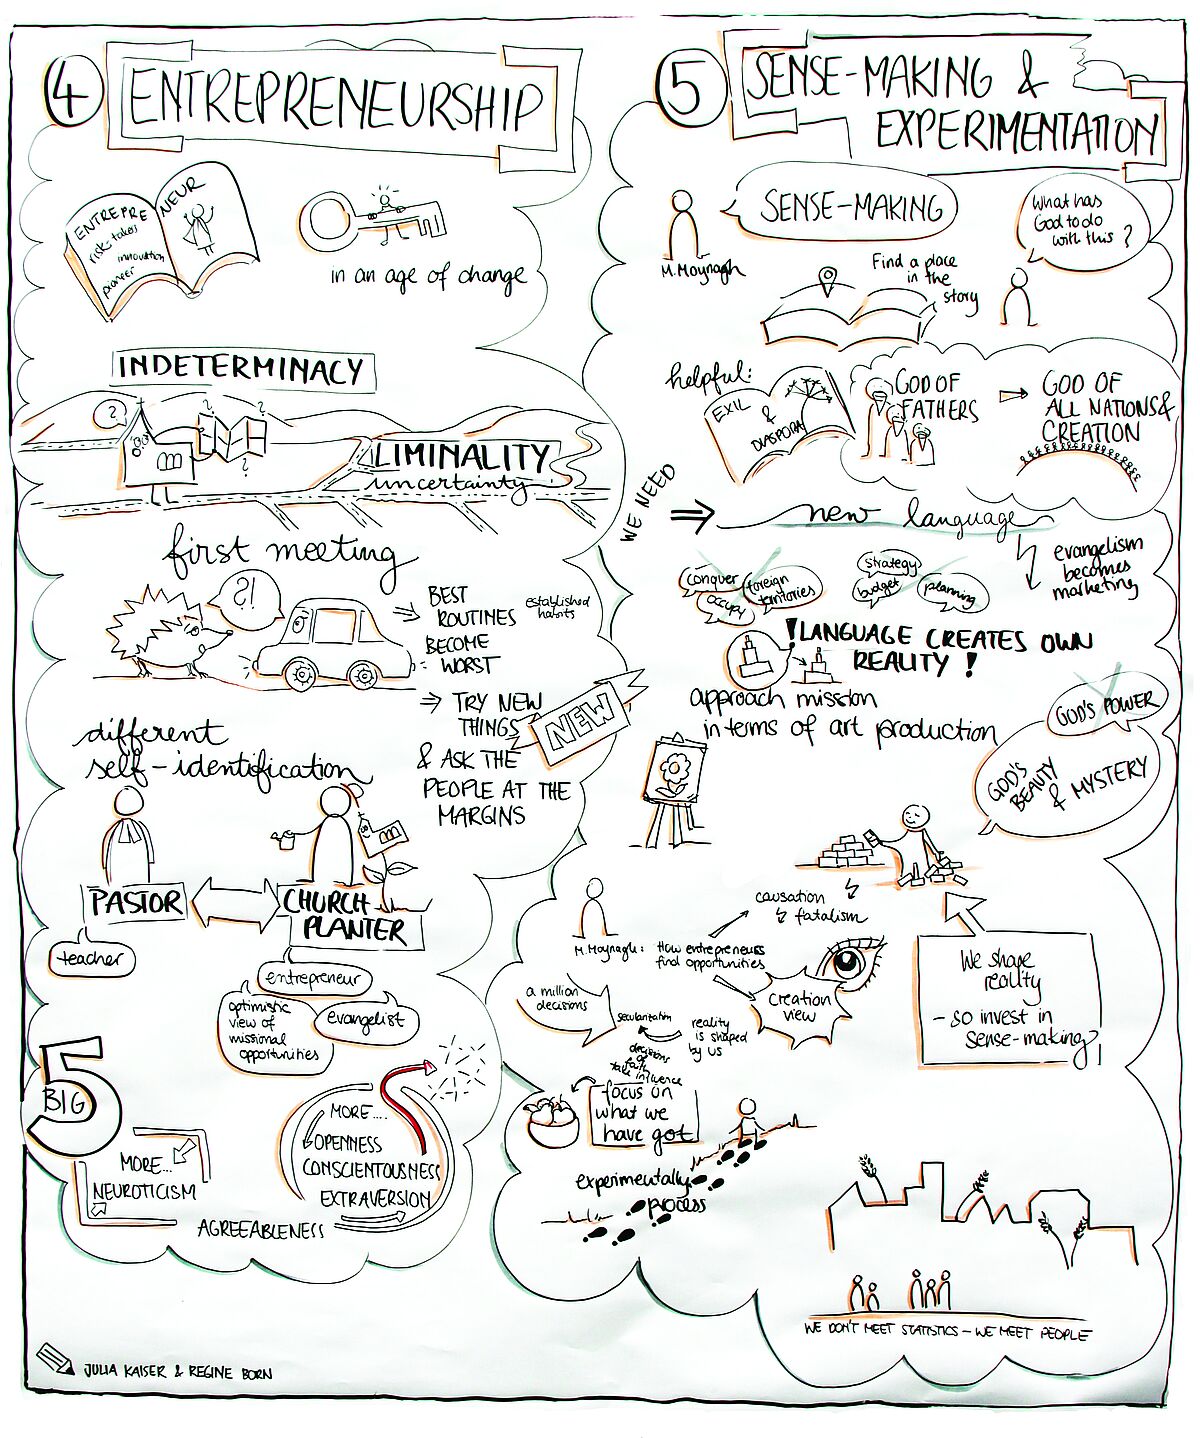 4 ENTREPRENEURSHIP
ENTREPRE
NEUR
risk-taker
innovation
pioneer
in an age of change
INDETERMINACY
?
?
?
?
LIMINALITY
uncertainty
first meeting
?!
BEST
ROUTINES
established
habits
BECOME
WORST
⇒ TRY NEW
THINGS
NEW
& ASK THE
PEOPLE AT THE
MARGINS
different
self-identification
PASTOR
CHURCH
PLANTER
teacher
entrepreneur
optimistic
view of
missional
opportunities
evangelist
BIG 5
MORE...
NEUROTICISM
MORE....
OPENNESS
CONSCIENTOUSNESS
EXTRAVERSION
AGREEABLENESS
JULIA KAISER & REGINE BORN
5 SENSE-MAKING &
EXPERIMENTATION
SENSE-MAKING
M. Moynagh
What has
God to do
with this?
Find a place
in the
story
helpful:
EXIL
&
DIASPORA
GOD OF
FATHERS
GOD OF
ALL NATIONS &
CREATION
WE NEED
⇒ new language
conquer
occupy
foreign
territories
strategy
budget
planning
evangelism
becomes
marketing
!LANGUAGE CREATES OWN
REALITY!
approach mission
in terms of art production
GOD'S POWER
GOD'S
BEAUTY
& MYSTERY
M. Moynagh: How entrepreneurs
find opportunities
causation
fatalism
creation
view
a million
decisions
secularisation
reality
is shaped
by us
decisions
of
faith
take influence
focus on
what we
have got
experimentally
process
We shape
reality
- so invest in
sense-making!
WE DON'T MEET STATISTICS - WE MEET PEOPLE